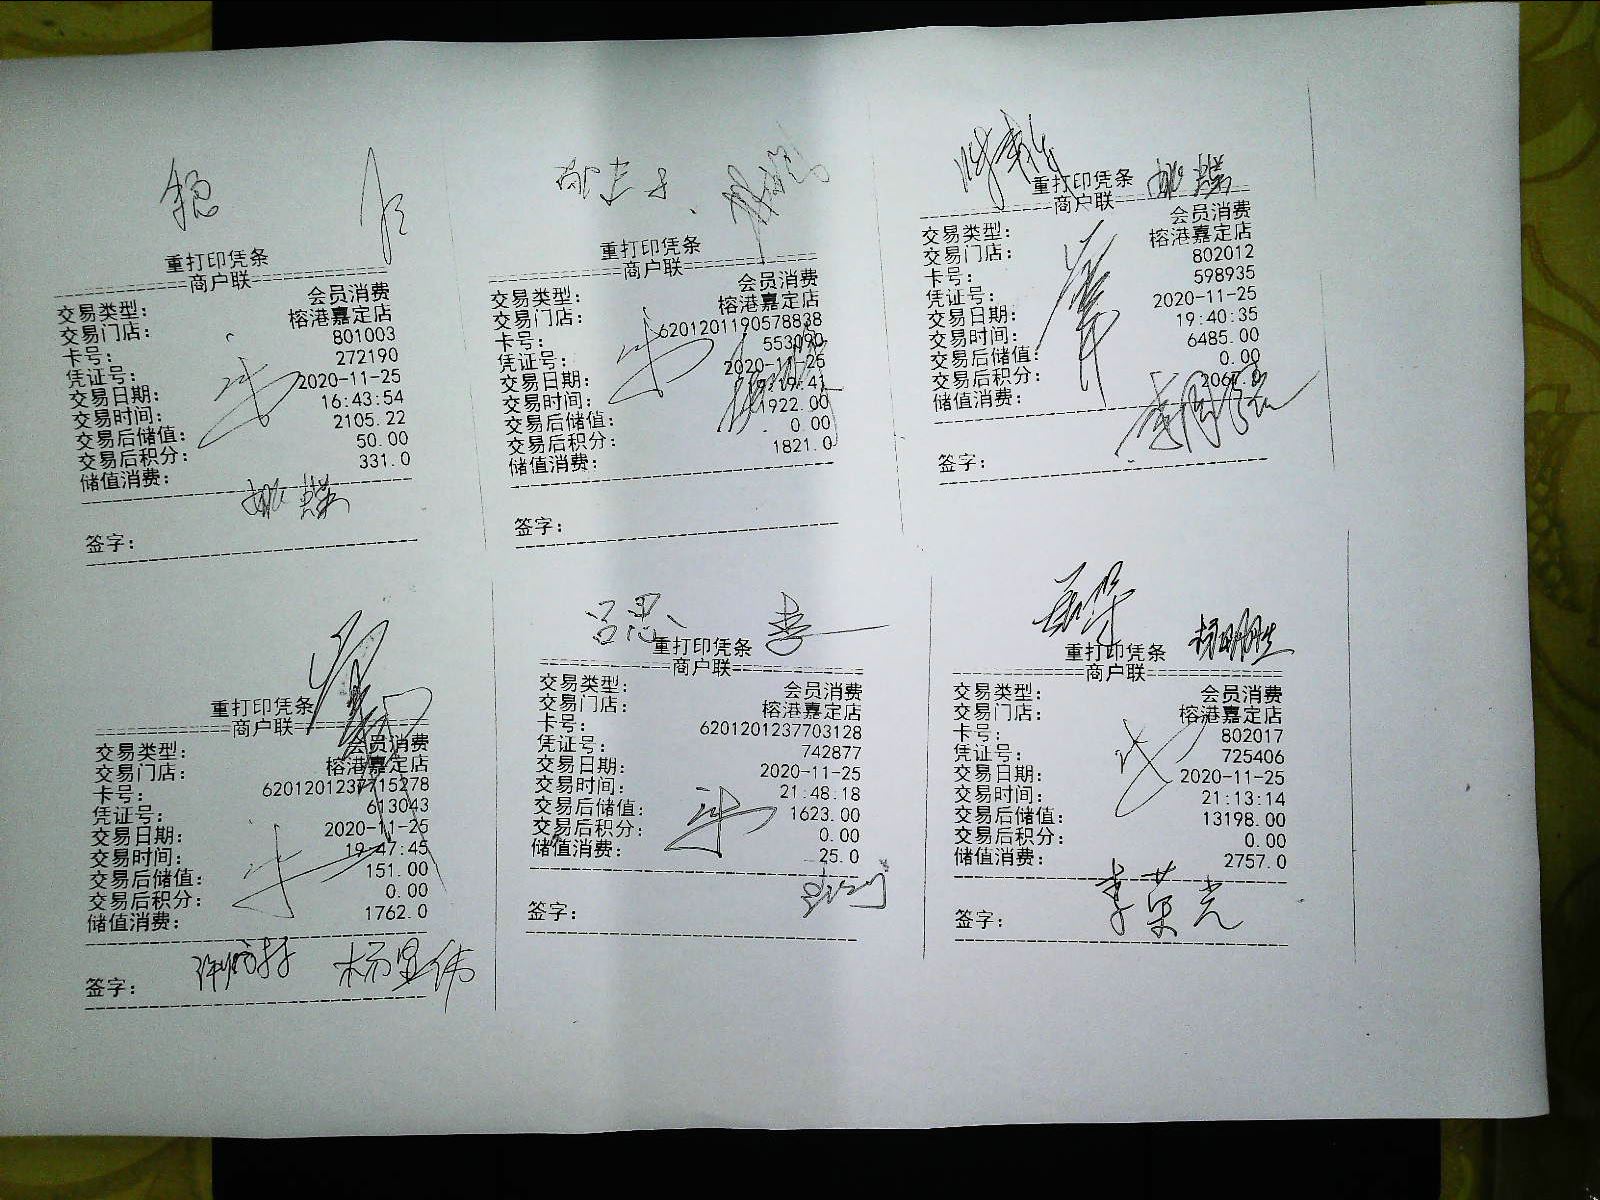 重打印凭条
商户联
交易类型： 会员消费
交易门店： 榕港嘉定店
卡号： 801003
凭证号： 272190
交易日期： 2020-11-25
交易时间： 16:43:54
交易后储值： 2105.22
交易后积分： 50.00
储值消费： 331.0
签字：
重打印凭条
商户联
交易类型： 会员消费
交易门店： 榕港嘉定店
卡号： 6201201190578838
凭证号：
交易日期： 2020-11-25
交易时间：
交易后储值： 1922.00
交易后积分： 0.00
储值消费： 1821.0
签字：
重打印凭条
商户联
交易类型： 会员消费
交易门店： 榕港嘉定店
卡号： 802012
凭证号： 598935
交易日期： 2020-11-25
交易时间： 19:40:35
交易后储值： 6485.00
交易后积分： 0.00
储值消费： 2067.0
签字：
重打印凭条
商户联
交易类型： 会员消费
交易门店： 榕港嘉定店
卡号： 6201201237715278
凭证号： 613043
交易日期： 2020-11-25
交易时间： 19:47:45
交易后储值： 151.00
交易后积分： 0.00
储值消费： 1762.0
签字： 杨星伟
吕思 李
重打印凭条
商户联
交易类型： 会员消费
交易门店： 榕港嘉定店
卡号： 6201201237703128
凭证号： 742877
交易日期： 2020-11-25
交易时间： 21:48:18
交易后储值： 1623.00
交易后积分： 0.00
储值消费： 25.0
签字：
杨明胜
重打印凭条
商户联
交易类型： 会员消费
交易门店： 榕港嘉定店
卡号： 802017
凭证号： 725406
交易日期： 2020-11-25
交易时间： 21:13:14
交易后储值： 13198.00
交易后积分： 0.00
储值消费： 2757.0
签字： 李荣光